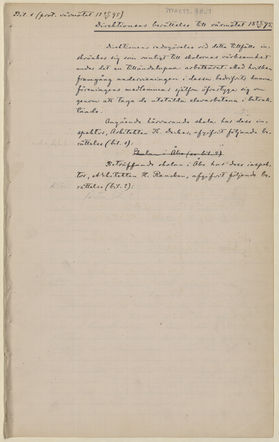 Bil. 1 (prot. vårmötet 18 /95)
Direktionens berättelse till vårmötet 18 /95
Direktionens redogörelse vid detta tillfälle in-
skränker sig som vanligt till skolornas verksamhet
under det nu tilländalupna arbetsåret. Med hvilken
framgång undervisningen i dessa bedrifvits kunna
föreningens medlemmar sjelfva öfvertyga sig om
genom att taga de utstälda elevarbetena i betrak-
tande.
Angående härvarande skola har dess in-
spektor, Arkitekten H. afgifvit följande be-
rättelse (bil. 1).
Skolan i Åbo (se bil. 2)
Beträffande skolan i Åbo har dess inspek-
tor, Arkitekten H. afgifvit följande be-
rättelse (bil. 2):